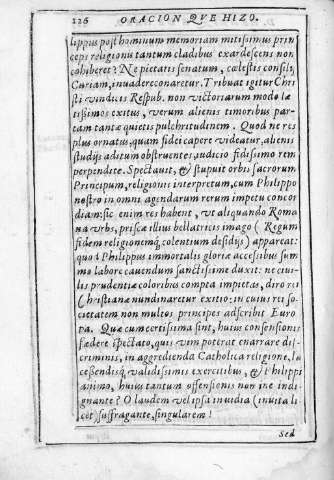 126 ORACION QVE HIZO.
lippus post hominum memoriam mitissimus prin
ceps religionū tantum cladibus exardescens non
cohiberet? Ne pietatis senatum, cœlestis consilij
Curiam, inuadere conaretur. Tribuat igitur Chri
sti vindicis Respub. non victoriarum modo læ
tissimos exitus, verum alienis timoribus par-
tam tantæ quietis pulchritudinem. Quod ne res
plus ornatus, quam fidei capere videatur, alienis
studijs aditum obstruentes, iudicio fidissimo rem
perpendite. Spectauit, & stupuit orbis sacrorum
Principum, religionis interpretum, cum Philippo
nostro in omni agendarum rerum impetu concor
diam: sic enim res habent, vt aliquando Roma
na vrbs, priscæ illius bellatricis imago ( Regum
fidem religionemq; colentium desidijs) appareat:
quod Philippus immortalis gloriæ accessibus sum
mo labore cauendum sanctissime duxit: ne ciui-
lis prudentiæ coloribus compta impietas, diro rei
Christianæ nundinaretur exitio: in cuius rei so-
cietatem non multos principes adscribit Euro
pa. Quæ cum certissima sint, huius consensionis
fœdere spectato, quis vim poterat enarrare di-
criminis, in aggredienda Catholica religione, la
cessendisq; validissimis exercitibus, & Philippi
animo, huius tantum offensionis non ine indi-
gnante? O laudem vel ipsa inuidia (inuita li
cet) suffragante, singularem!
Sed